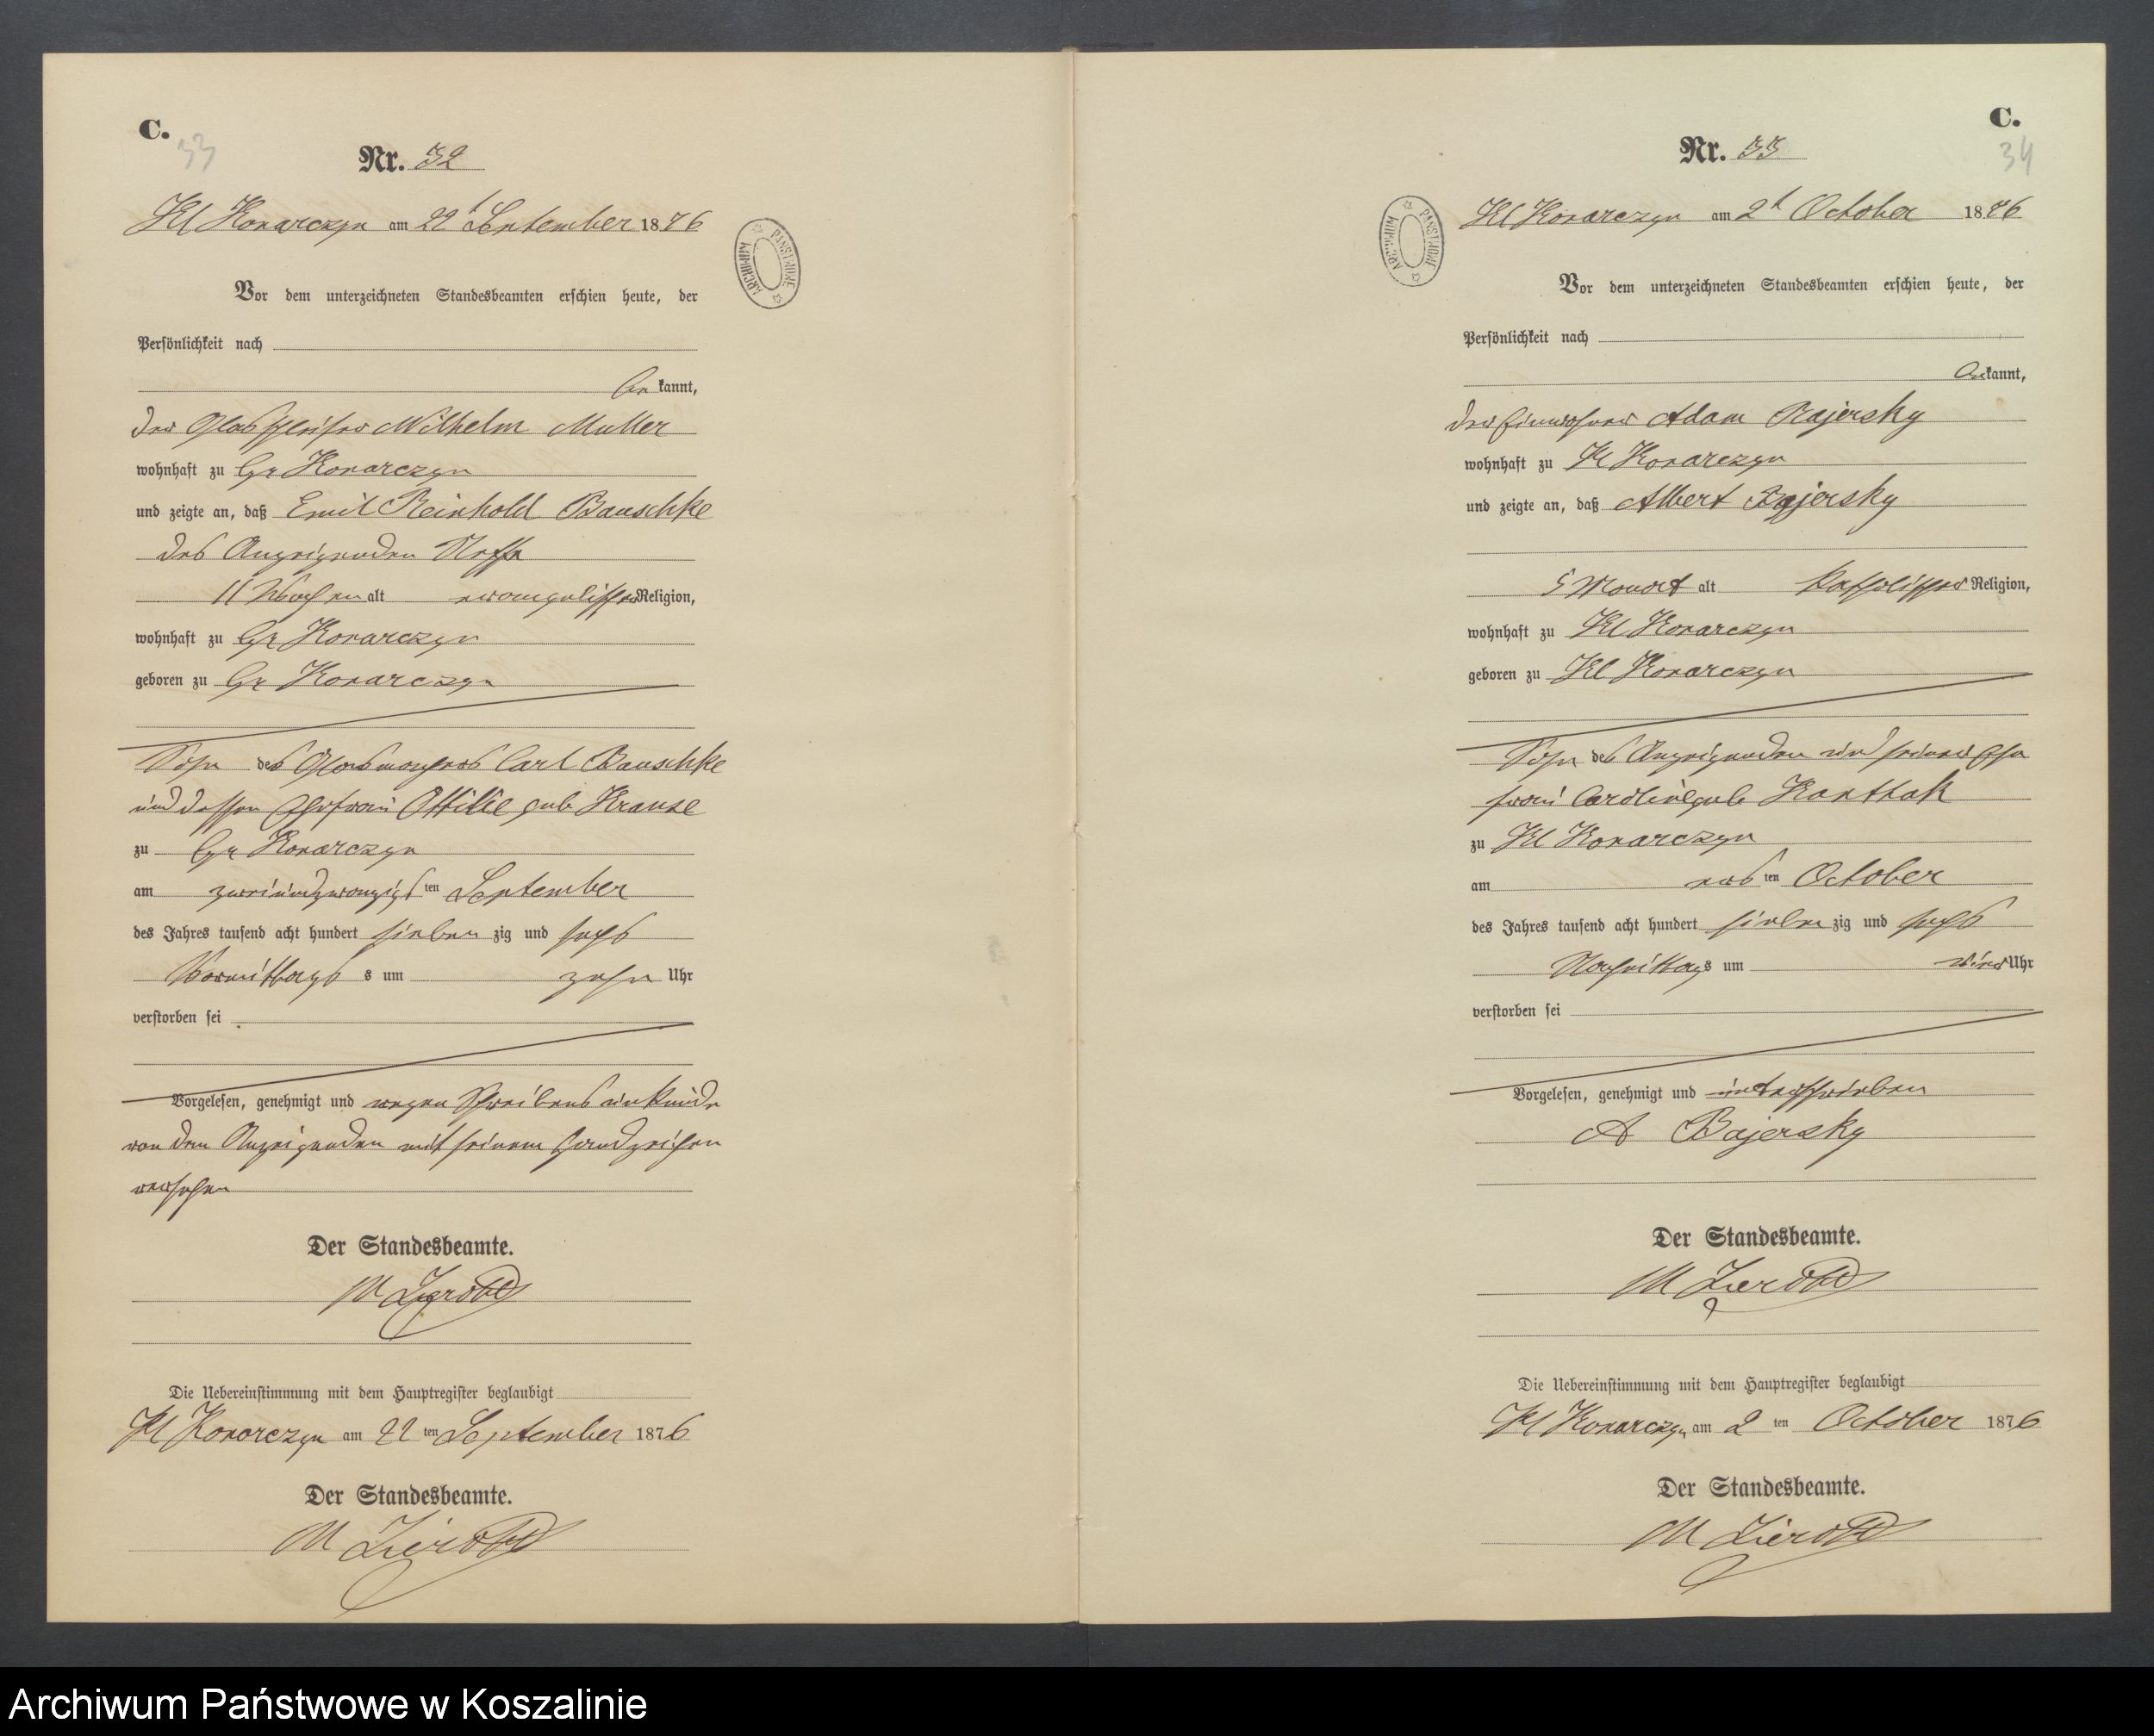 C.
33
Nr. 32
Kl Konarczyn am 22t September 1876
Vor dem unterzeichneten Standesbeamten erschien heute, der
Persönlichkeit nach
be kannt,
der Glasschleifer Wilhelm Muller
wohnhaft zu Gr Konarczyn
und zeigte an, daß Emil Reinhold Bauschke
des Anzeigenden Neffe
11 Wochen alt evangelischer Religion,
wohnhaft zu Gr Konarczyn
geboren zu Gr Konarczyn
Sohn des Glasmachers Carl Bauschke
und dessen Ehefrau Ottilie geb Krause
zu Gr Konarczyn
am zweiundzwanzigsten September
des Jahres tausend acht hundert sieben zig und sechs
Vormittags s um zehn Uhr
verstorben sei
Vorgelesen, genehmigt und wegen Schreibensunkunde
von dem Anzeigenden mit seinem Handzeichen
versehen
Der Standesbeamte.
M
Die Uebereinstimmung mit dem Hauptregister beglaubigt
Kl Konarczyn am 22 ten September 1876
Der Standesbeamte.
M
C.
34
Nr. 33
Kl Konarczyn am 2t October 1876
Vor dem unterzeichneten Standesbeamten erschien heute, der
Persönlichkeit nach
be kannt,
der Einwohner Adam Bajersky
wohnhaft zu Kl Konarczyn
und zeigte an, daß Albert Bajersky
5 Monat alt katholischer Religion,
wohnhaft zu Kl Konarczyn
geboren zu Kl Konarczyn
Sohn des Anzeigenden und seiner Ehe
frau geb
zu Kl Konarczyn
am ersten October
des Jahres tausend acht hundert sieben zig und sechs
Nachmittags um vier Uhr
verstorben sei
Vorgelesen, genehmigt und unterschrieben
A Bajersky
Der Standesbeamte.
M
Die Uebereinstimmung mit dem Hauptregister beglaubigt
Kl Konarczyn am 2 ten October 1876
Der Standesbeamte.
M
ARCHIWUM PAŃSTWOWE
ARCHIWUM PAŃSTWOWE
Archiwum Państwowe w Koszalinie